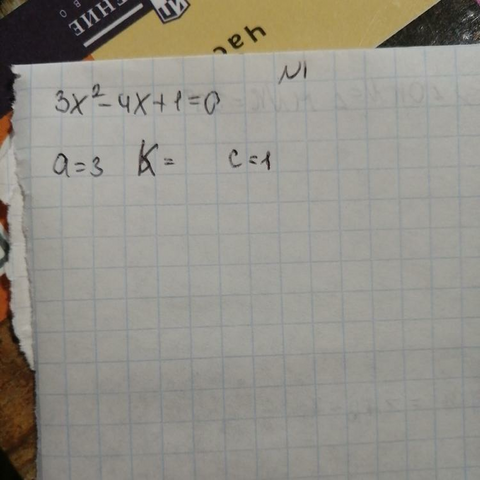 ЕНИЕ
ВО
час
N1
3x²-4x+1=0
a=3 k= c=1